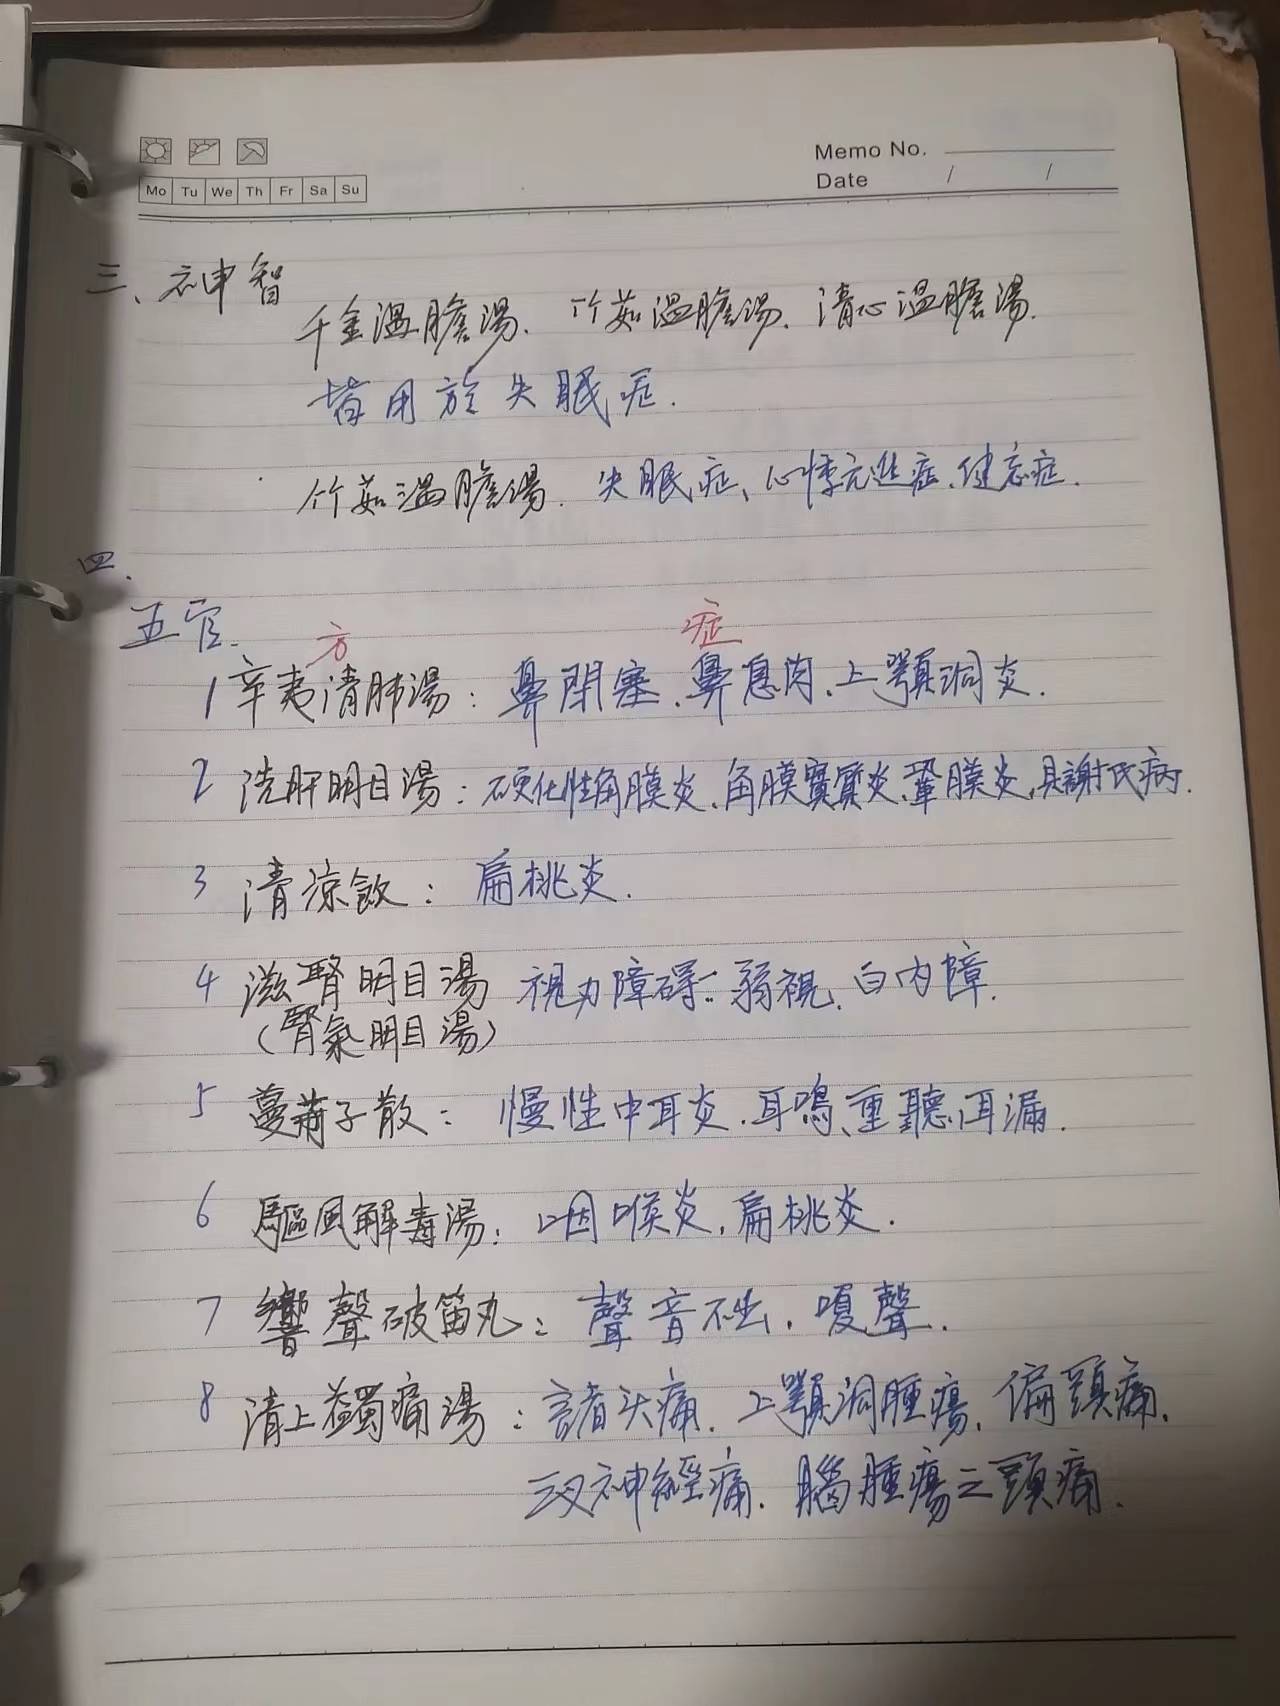 Memo No.
Mo Tu We Th Fr Sa Su
Date / /
三、神智
千金温膽湯、竹茹温膽湯、清心温膽湯.
皆用於失眠症.
竹茹温膽湯. 失眠症、心悸亢进症、健忘症.
四.
五官.
方 症
1 辛夷清肺湯：鼻閉塞、鼻息肉、上顎洞炎.
2 洗肝明目湯：硬化性角膜炎、角膜實質炎、鞏膜炎,具謝氏病.
3 清涼飲：扁桃炎.
4 滋腎明目湯 視力障碍：弱視、白内障.
(腎氣明目湯)
5 蔓荊子散：慢性中耳炎、耳鳴、重聽、耳漏.
6 驅風解毒湯：咽喉炎，扁桃炎.
7 響聲破笛丸：聲音不出，嗄聲.
8 清上蠲痛湯：諸头痛、上顎洞腫瘍、偏頭痛、
三叉神經痛、腦腫瘍之頭痛.